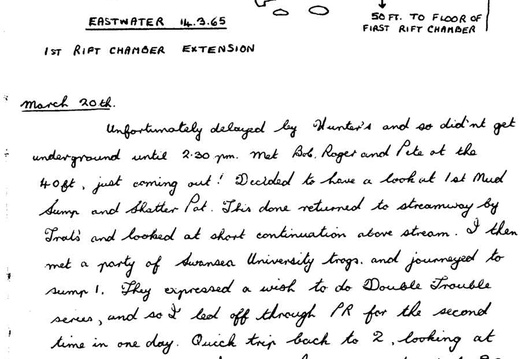 EASTWATER 14.3.65
50 FT. TO FLOOR OF
FIRST RIFT CHAMBER
1ST RIFT CHAMBER EXTENSION
March 20th.
Unfortunately delayed by Hunter's and so did'nt get
underground until 2.30 pm. Met Bob, Roger and Pete at the
40ft, just coming out! Decided to have a look at 1st Mud
Sump and Shatter Pot. This done returned to streamway by
Trat's and looked at short continuation above stream. I then
met a party of Swansea University trogs. and journeyed to
sump 1. They expressed a wish to do Double Trouble
series, and so I led off through PR for the second
time in one day. Quick trip back to 2, looking at